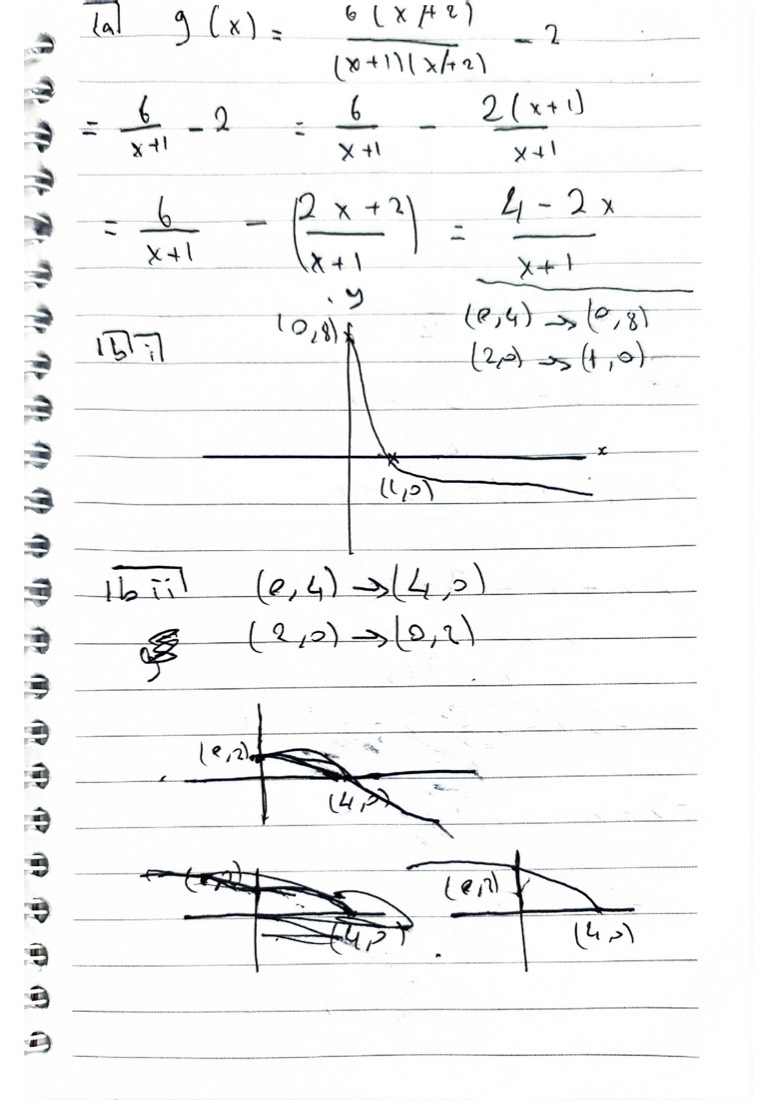 1a) g(x) = 6(x+2)/(x+1)(x+2) - 2
= 6/x+1 - 2 = 6/x+1 - 2(x+1)/x+1
= 6/x+1 - (2x+2/x+1) = 4-2x/x+1
y
(0,8) (0,4) → (0,8)
1b i (2,0) → (1,0)
x
(1,0)
1b ii (0,4) → (4,0)
g (2,0) → (0,2)
(0,2)
(4,0)
(0,2)
(4,0) (4,0)